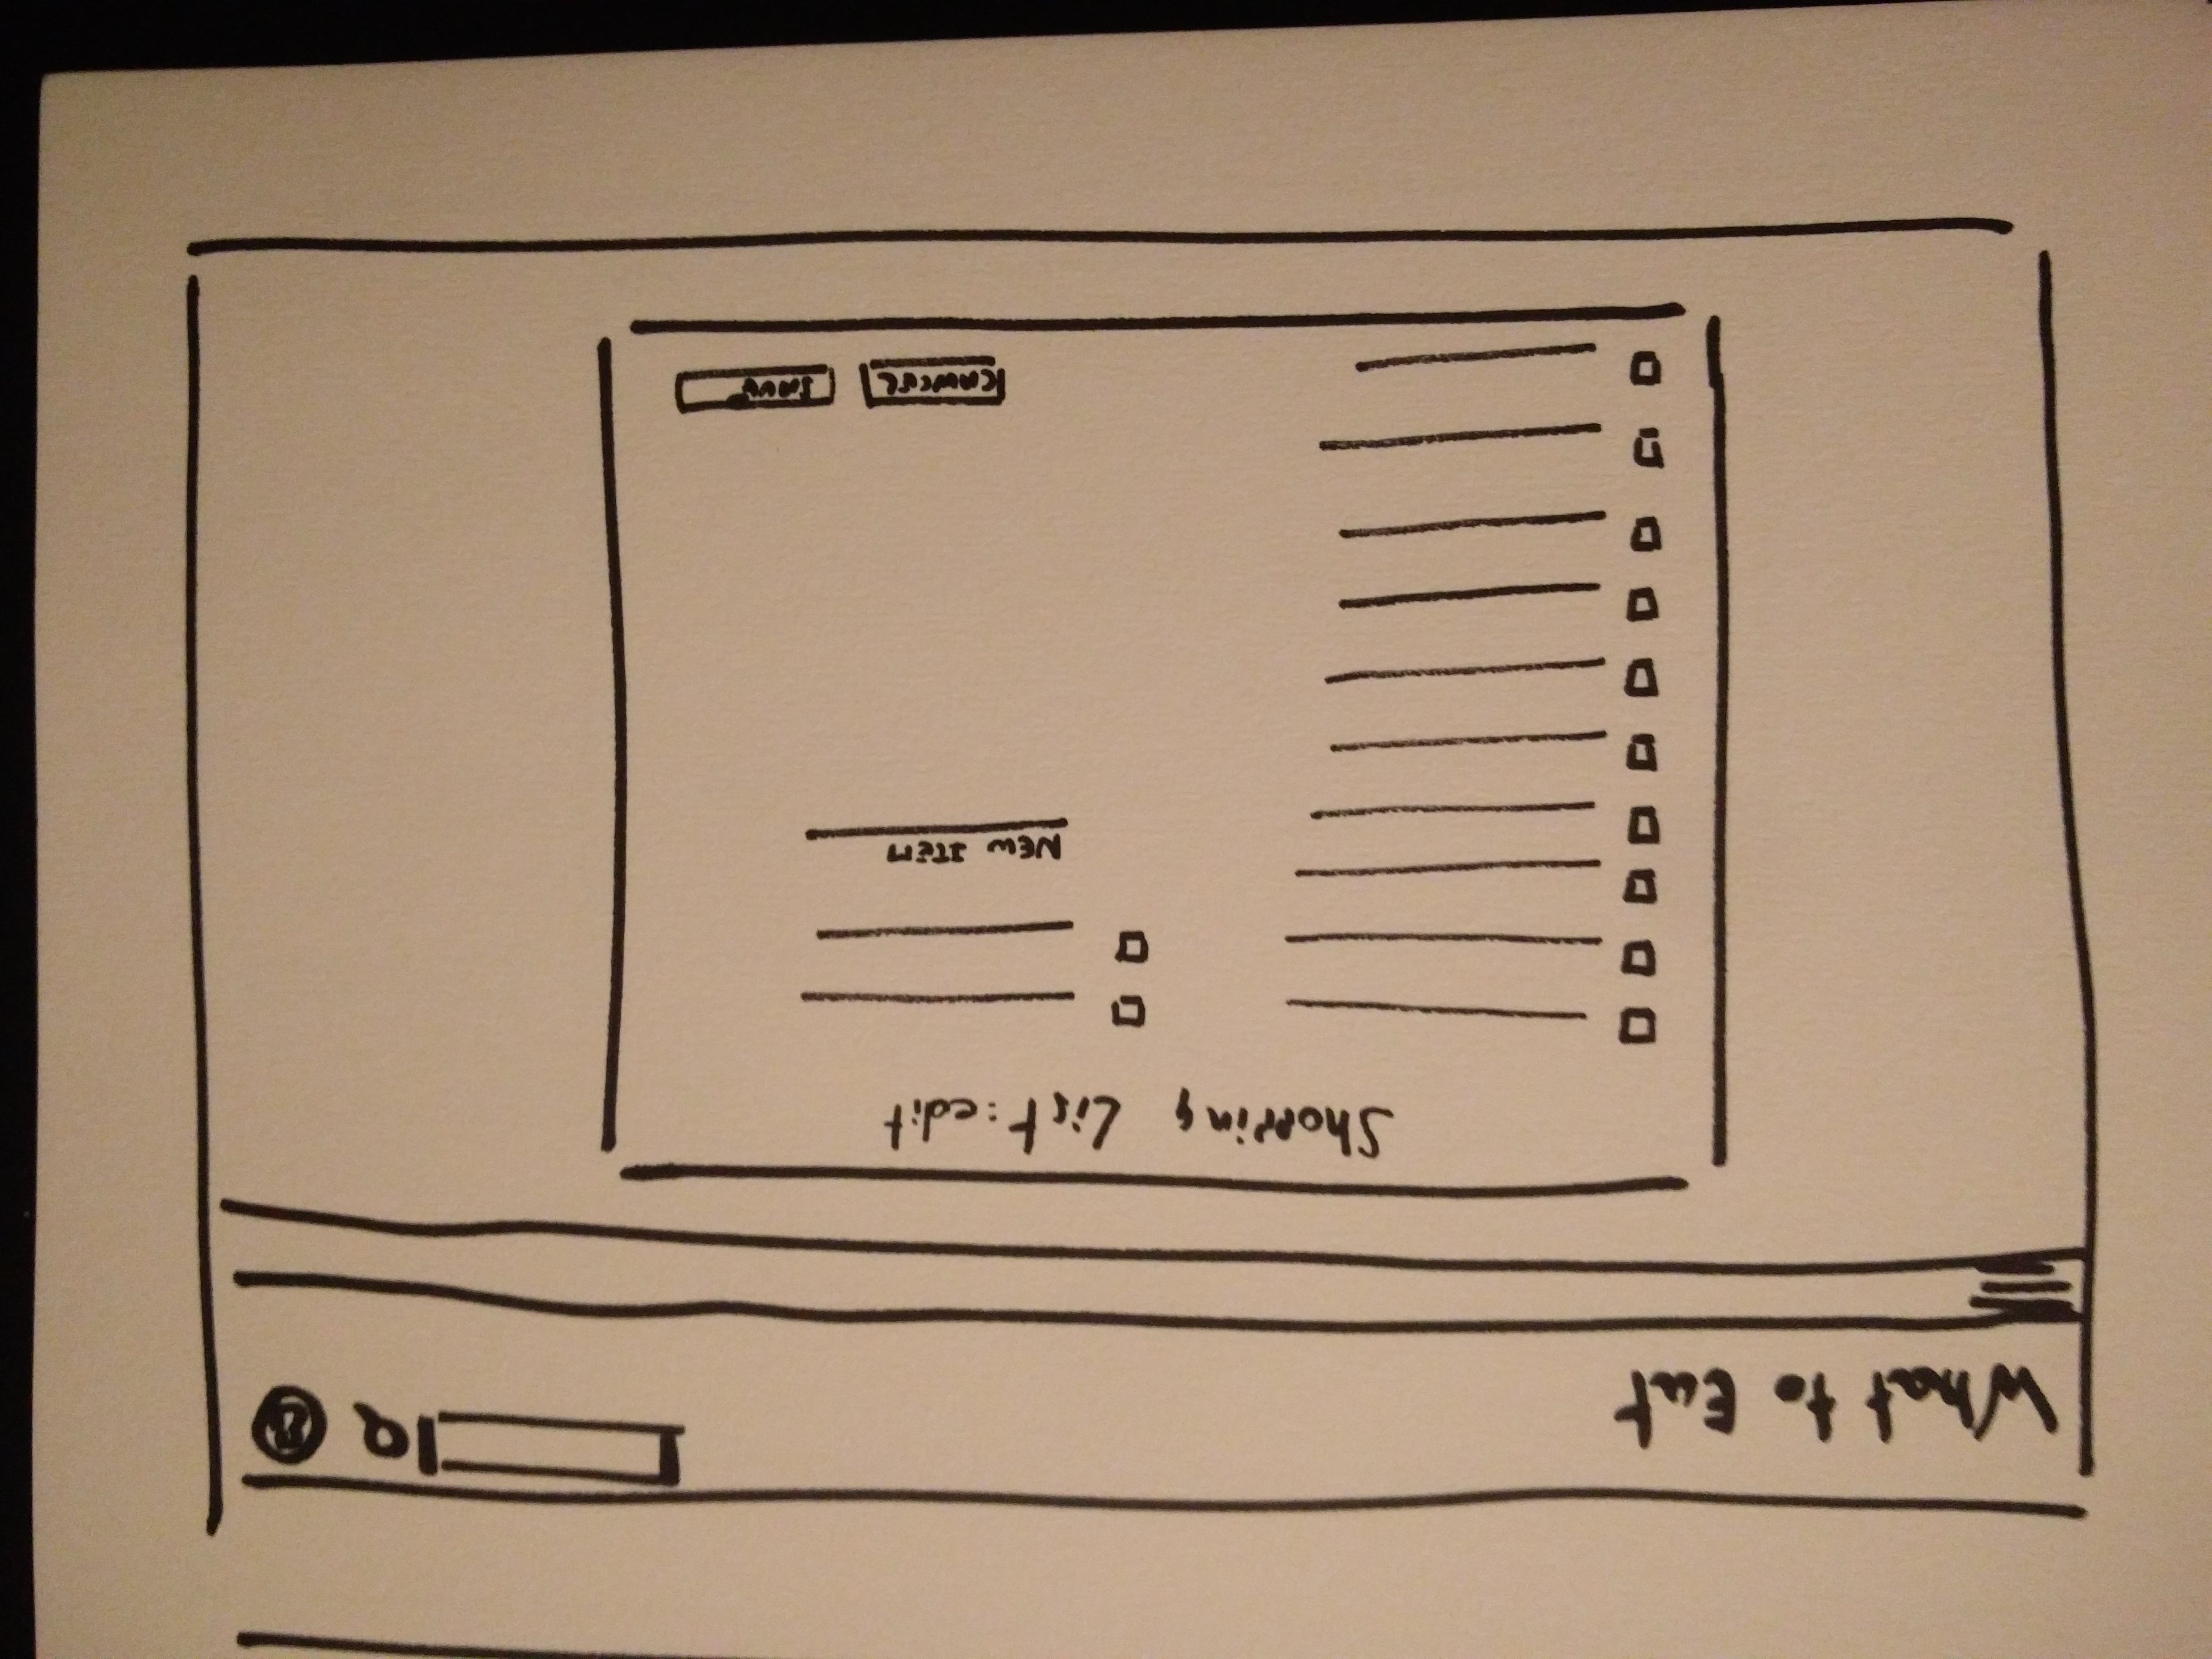 What to Eat
Shopping List: edit
NEW ITEM
CANCEL
SAVE